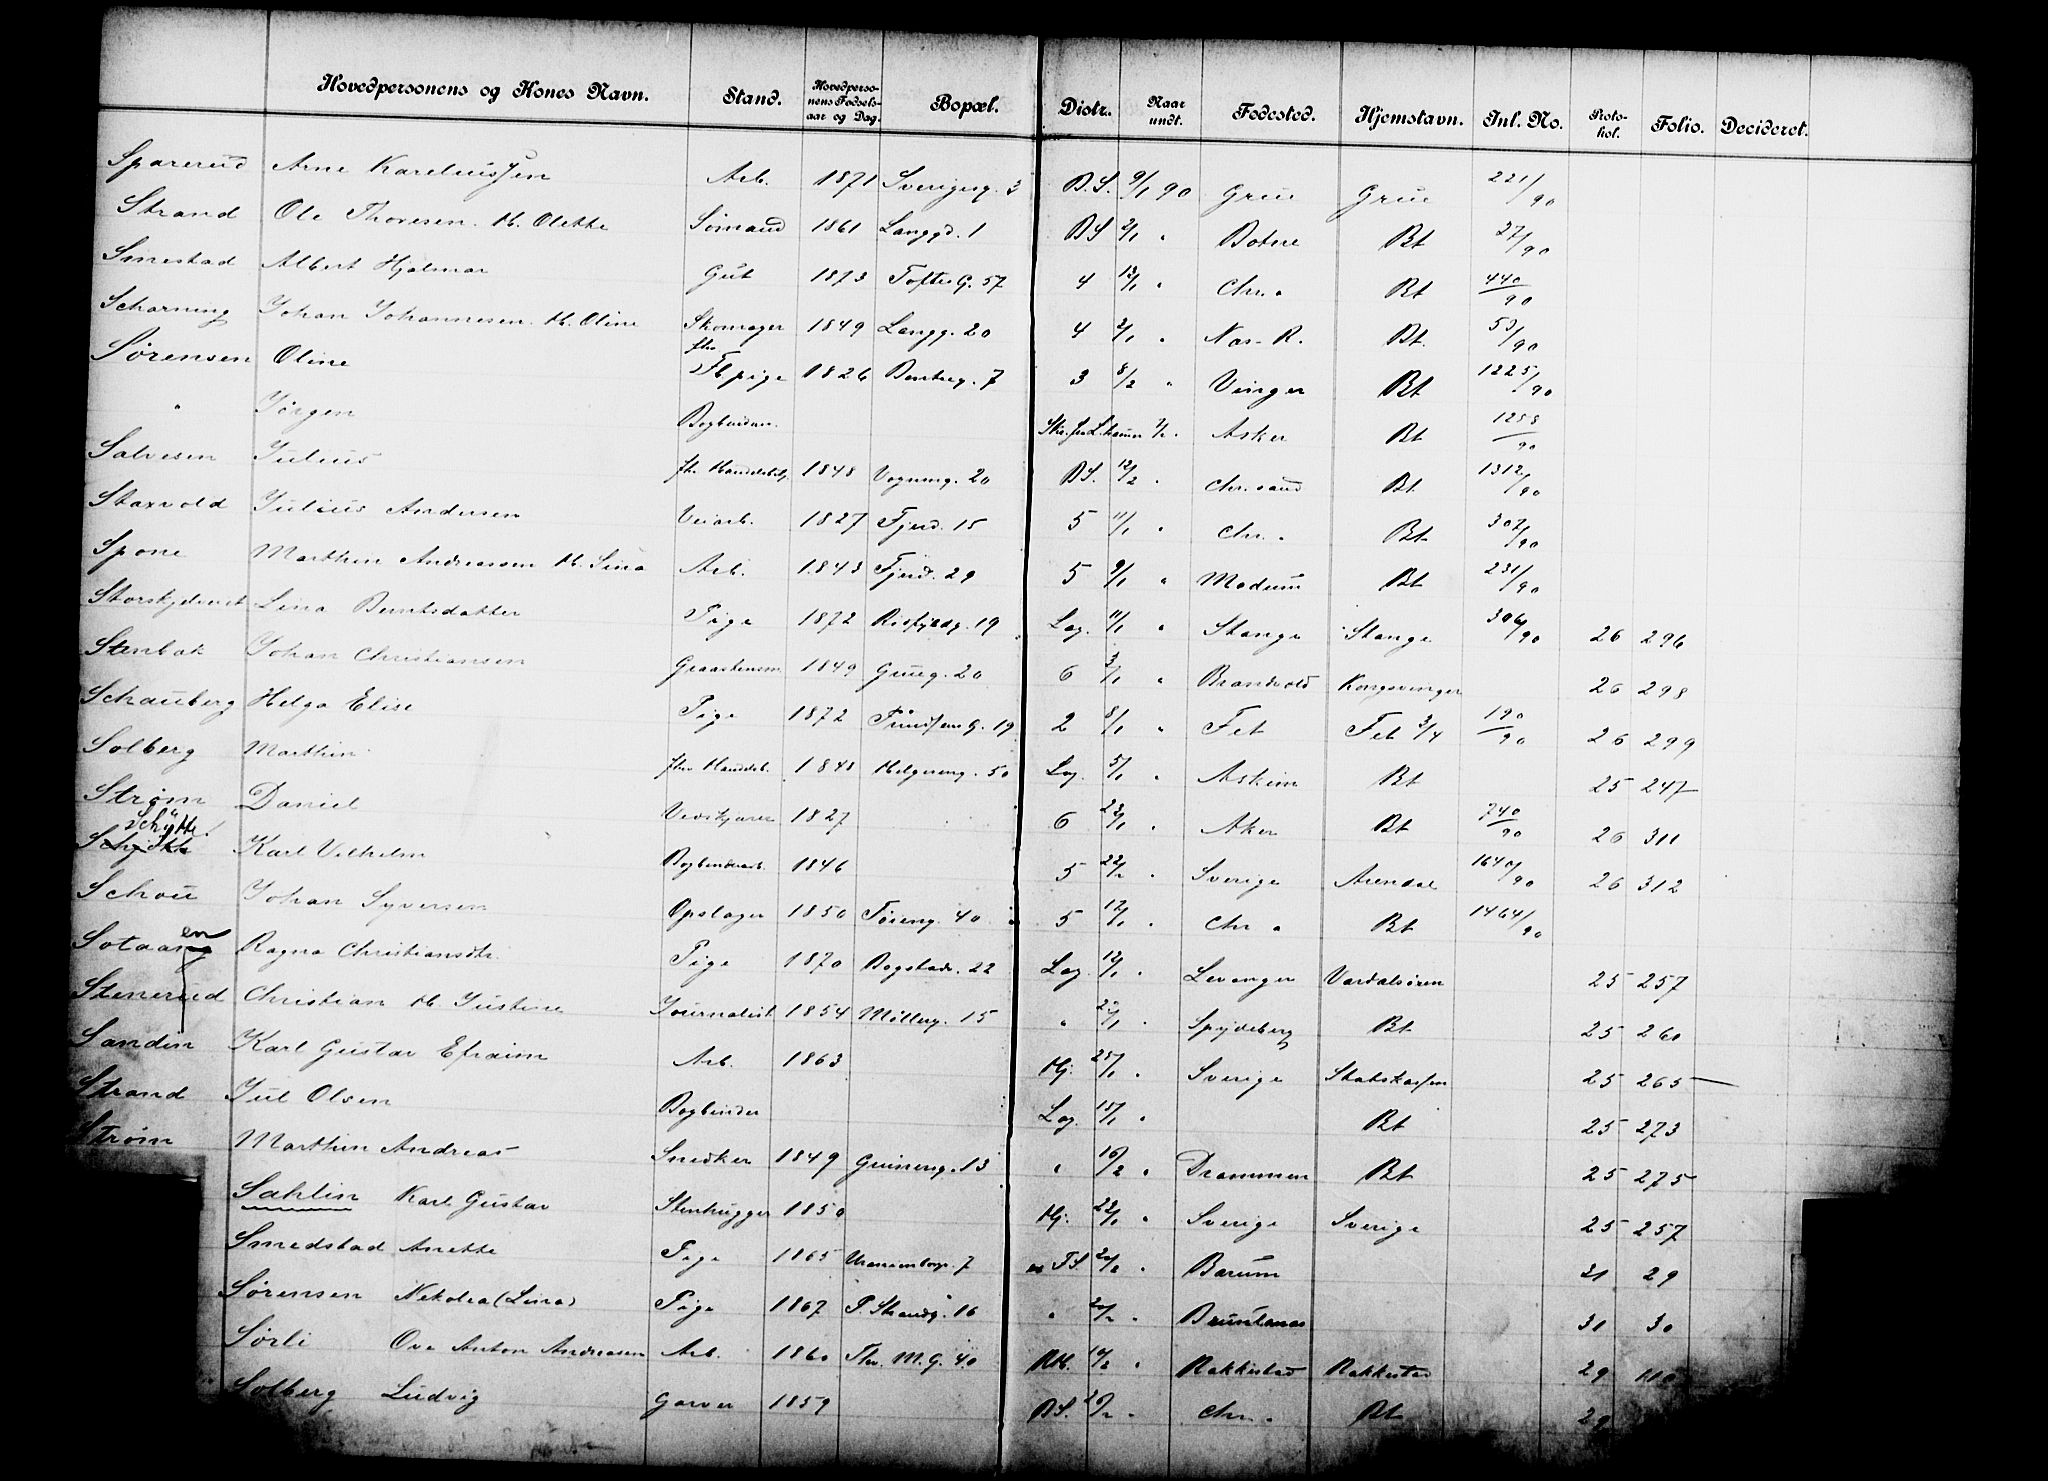 Hovedpersonens og Kones Navn. Stand. Hovedpersonens Fødselsaar og Dag. Bopæl. Distr. Naar undt. Fødested. Hjemstavn. Inl. No. Protokol. Folio. Decideret.
Sparerud Arne Kareliussen Arb. 1871 Sverigesg. 3 B.S. 9/1 90 Grue Grue 221/90
Strand Ole Thoresen. H. Olette Sømand 1861 Langgd. 1 BS 2/1 " Botne Bt 27/90
Smestad Albert Hjalmar Gut 1873 Toftes G. 57 4 13/1 " Chr. a Bt 440/90
Scharning Johan Johannesen. H. Oline Skomager 1849 Langg. 20 4 2/1 " Næs - R. Bt. 53/90
Sørensen Oline fhv. Fbpige 1826 Bentseg. 7 3 8/2 " Vinger Bt 1225/90
" Jørgen Bogbinder. Asker Bt 1253/90
Salvesen Julius fhv. Handelsb. 1848 Vognmg. 20 BS. 12/2 " Chr.sand Bt 1312/90
Staxvold Julius Andersen Veiarb. 1827 Fjerd. 15 5 11/1 " Chr. a Bt 307/90
Spone Marthin Andreassen H. Sina Arb. 1843 Fjerd. 29 5 9/1 " Modum Bt 231/90
Lina Berntsdatter Pige 1872 19 Lag. 11/1 " Stange Stange 306/90 26 296
Stenbak Johan Christiansen Graastensm 1849 Grueg. 20 6 3/1 " Brandvold Kongsvinger 26 298
Schauberg Helga Elise Pige 1872 19 2 8/1 " Fet Fet 3/4 190/90 26 299
Solberg Marthin fhv Handelsb. 1848 Helgeseng. 50 Lag. 5/1 " Askim Bt 25 247
Strøm Daniel Vedskjærer 1827 6 23/1 " Aker Bt 740/90 26 311
Schÿtte Karl Vilhelm Bogbinderarb. 1846 5 22/2 " Sverige Arendal 1640/90 26 312
Schou Johan Syversen Opslager 1850 Tøieng. 40 5 17/1 " Chr a Bt 1464/90
Sotaaen Ragna Christiansdtr. Pige 1870 Bogstadv. 22 Lag. 12/1 " Levanger Værdalsøren 25 257
Stenerud Christian H. Justine Journalist 1854 Møllerg. 15 " 22/1 " Spydeberg Bt 25 260
Sandin Karl Gustav Efraim Arb. 1863 Hj. 25/1 " Sverige Statskassen 25 265
Strand Jul Olsen Bogbinder Lag 15/1 " Bt 25 273
Strøm Marthin Andreas Snedker 1849 Grünerg. 13 " 16/2 " Drammen Bt 25 275
Sahlin Karl Gustav Stenhugger 1850 Hj. 22/1 " Sverige Sverige 25 257
Smedstad Anette Pige 1865 Uranienborgv. 7 F.S. 20/2 " Bærum 31 29
Sørensen Nikolea (Lina) Pige 1867 P. Strandg. 16 " 20/2 " Bruunlanæs 31 30
Sørli Ove Anton Andreasen Arb. 1860 Thv. M. G. 40 RH. 14/2 " Rakkestad Rakkestad 29 110
Solberg Ludvig Garver 1859 BS. 20/2 " Chr. a Bt 29